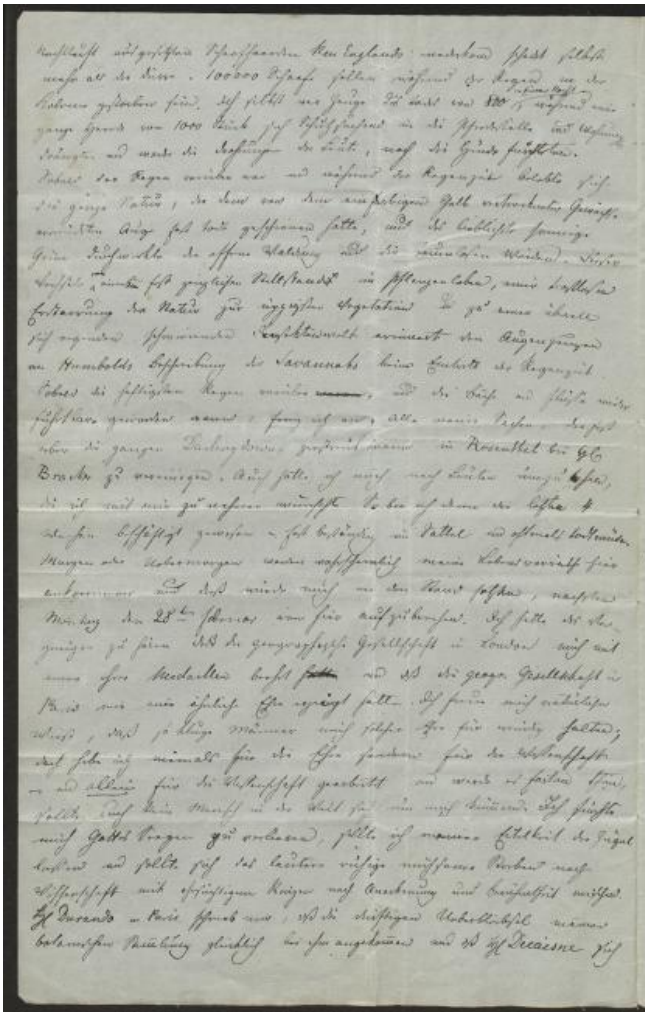 ausgesetzten Schafheerden Neu Englands
mehr als die dürre. 100000 Schaafe sollen während der Regen in der
Kolonie gestorben sein. Ich selbst war Zeuge des Todes von 800 während eine
ganze Heerde von 1000 Stück sich Schutzsuchend in die Pferdeställe und Wohnung
drängten und weder die Drohungen der Leute, noch die Hunde fürchteten.
Sobald der Regen vorüber war und während der Regenzeit belebte sich
die ganze Natur, die dem von dem einfarbigen Gelb vertrockneter Gewächse
ermüdeten Auge fast todt geschienen hatte, und das lieblichste sonnige
Grün die offene Waldung und die baumlosen Weiden. Dieser
Wechsel eines fast gänzlichen Stillstands im Pflanzenleben, einer trostlosen
Erstarrung der Natur zur üppigsten Vegetation und zu einer überall
sich regenden schwirrenden Insektenwelt erinnert den Augenzeugen
an Humbolds Beschreibung der Savannahs beim Eintritt der Regenzeit.
Sobald die heftigsten Regen vorüber, und die Bäche und Flüsse wieder
geworden waren, fing ich an, alle meine Sachen, die fast
über die ganzen Darling downs zerstreut waren in Rosenthal bei H
Bracker zu vereinigen. Auch hatte ich mich nach Leuten umzusehen,
die ich mit mir zu nehmen wünschte. So bin ich denn die letzten 4
Wochen beschäftigt gewesen u fast beständig im Sattel und oftmals
Morgen oder Uebermorgen werden wahrscheinlich meine Lebensvorräthe hier
ankommen und dieß würde mich in den Stand setzen, nächsten
Montag den 28ten Februar von hier aufzubrechen. Ich hatte das Ver-
gnügen zu hören daß die geographische Gesellschaft in London mich mit
einer ihrer Medaillen beehrt und daß die geogr. Gesellschaft in
Paris mir eine ähnliche Ehre erzeigt hatte. Ich freue mich natürlicher
Weise, daß so kluge Männer mich solcher Ehre für würdig halten;
doch habe ich niemals für die Ehre sondern für die Wissenschaft
u allein für die Wissenschaft gearbeitet und werde es ferner thun,
sollte auch kein Mensch in der Welt sich um mich kümmern. Ich fürchte
mich Gottes Segen zu verlieren, sollte ich meiner Eitelkeit die Zügel
lassen und sollte sich das lautere ruhige mühsame Streben nach
Wissenschaft mit ehrsüchtigem nach Anerkennung und Berühmtheit mischen.
H Durando in Paris schrieb mir, daß die dürftigen Ueberbleibsel meiner
botanischen Sammlung glücklich bei ihm angekommen und daß H Decaisne sich